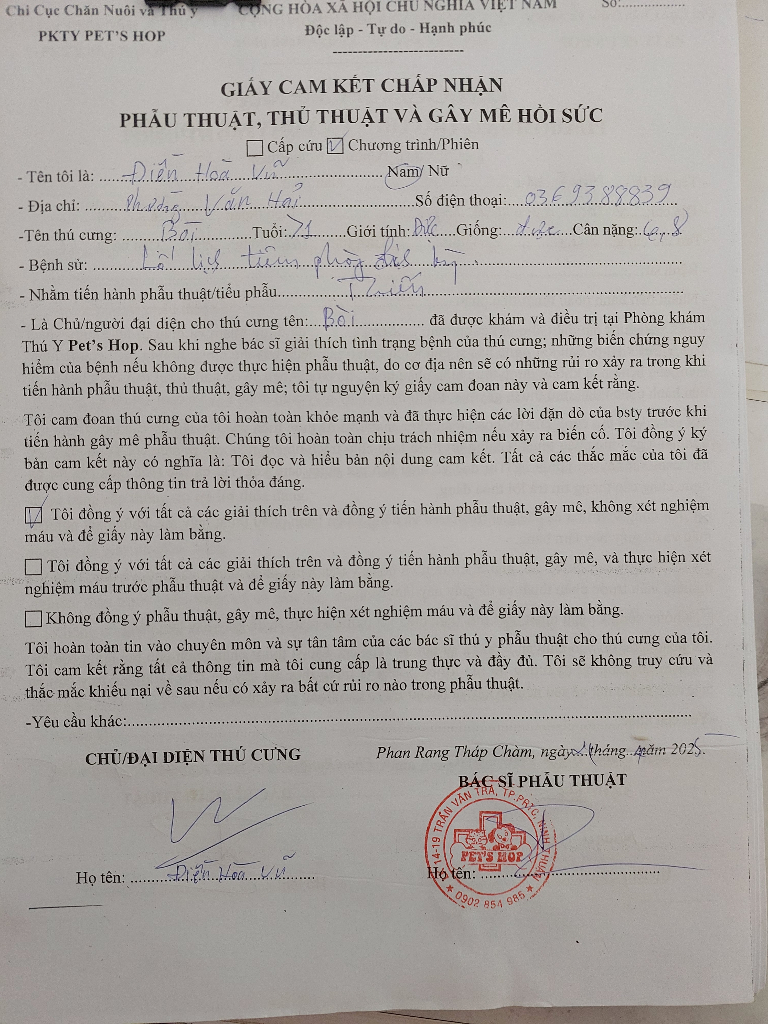 Chi Cục Chăn Nuôi và Thú y CỘNG HÒA XÃ HỘI CHỦ NGHĨA VIỆT NAM Số:
PKTY PET'S HOP Độc lập - Tự do - Hạnh phúc
GIẤY CAM KẾT CHẤP NHẬN
PHẪU THUẬT, THỦ THUẬT VÀ GÂY MÊ HỒI SỨC
Cấp cứu Chương trình/Phiên
- Tên tôi là: Điền Hoà Vũ Nam/ Nữ
- Địa chỉ: Phường Văn Hải Số điện thoại: 0369388839
-Tên thú cưng: Bòi Tuổi: >1 Giới tính: Đực Giống: Cân nặng: 6,8
- Bệnh sử: tiêm phòng
- Nhằm tiến hành phẫu thuật/tiểu phẫu Thiến
- Là Chủ/người đại diện cho thú cưng tên: Bòi đã được khám và điều trị tại Phòng khám
Thú Y Pet's Hop. Sau khi nghe bác sĩ giải thích tình trạng bệnh của thú cưng; những biến chứng nguy
hiểm của bệnh nếu không được thực hiện phẫu thuật, do cơ địa nên sẽ có những rủi ro xảy ra trong khi
tiến hành phẫu thuật, thủ thuật, gây mê; tôi tự nguyện ký giấy cam đoan này và cam kết rằng.
Tôi cam đoan thú cưng của tôi hoàn toàn khỏe mạnh và đã thực hiện các lời dặn dò của bsty trước khi
tiến hành gây mê phẫu thuật. Chúng tôi hoàn toàn chịu trách nhiệm nếu xảy ra biến cố. Tôi đồng ý ký
bản cam kết này có nghĩa là: Tôi đọc và hiểu bản nội dung cam kết. Tất cả các thắc mắc của tôi đã
được cung cấp thông tin trả lời thỏa đáng.
Tôi đồng ý với tất cả các giải thích trên và đồng ý tiến hành phẫu thuật, gây mê, không xét nghiệm
máu và để giấy này làm bằng.
Tôi đồng ý với tất cả các giải thích trên và đồng ý tiến hành phẫu thuật, gây mê, và thực hiện xét
nghiệm máu trước phẫu thuật và để giấy này làm bằng.
Không đồng ý phẫu thuật, gây mê, thực hiện xét nghiệm máu và để giấy này làm bằng.
Tôi hoàn toàn tin vào chuyên môn và sự tân tâm của các bác sĩ thú y phẫu thuật cho thú cưng của tôi.
Tôi cam kết rằng tất cả thông tin mà tôi cung cấp là trung thực và đầy đủ. Tôi sẽ không truy cứu và
thắc mắc khiếu nại về sau nếu có xảy ra bất cứ rủi ro nào trong phẫu thuật.
-Yêu cầu khác:
CHỦ/ĐẠI DIỆN THÚ CƯNG Phan Rang Tháp Chàm, ngày tháng 4 năm 2025.
BÁC SĨ PHẪU THUẬT
14-19 TRẦN VĂN TRÀ, TP.PRTC, NINH THUẬN
PET'S HOP
0902 854 985
Họ tên: Điền Hoà Vũ Họ tên: